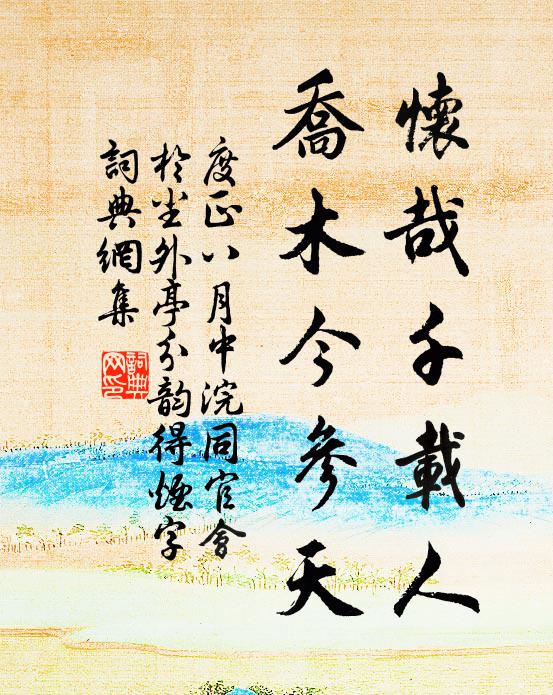 懷哉千載人
喬木今參天
度正八月中浣同官會
於尘外亭分韵得煙字
詞典網集
詞典
网印